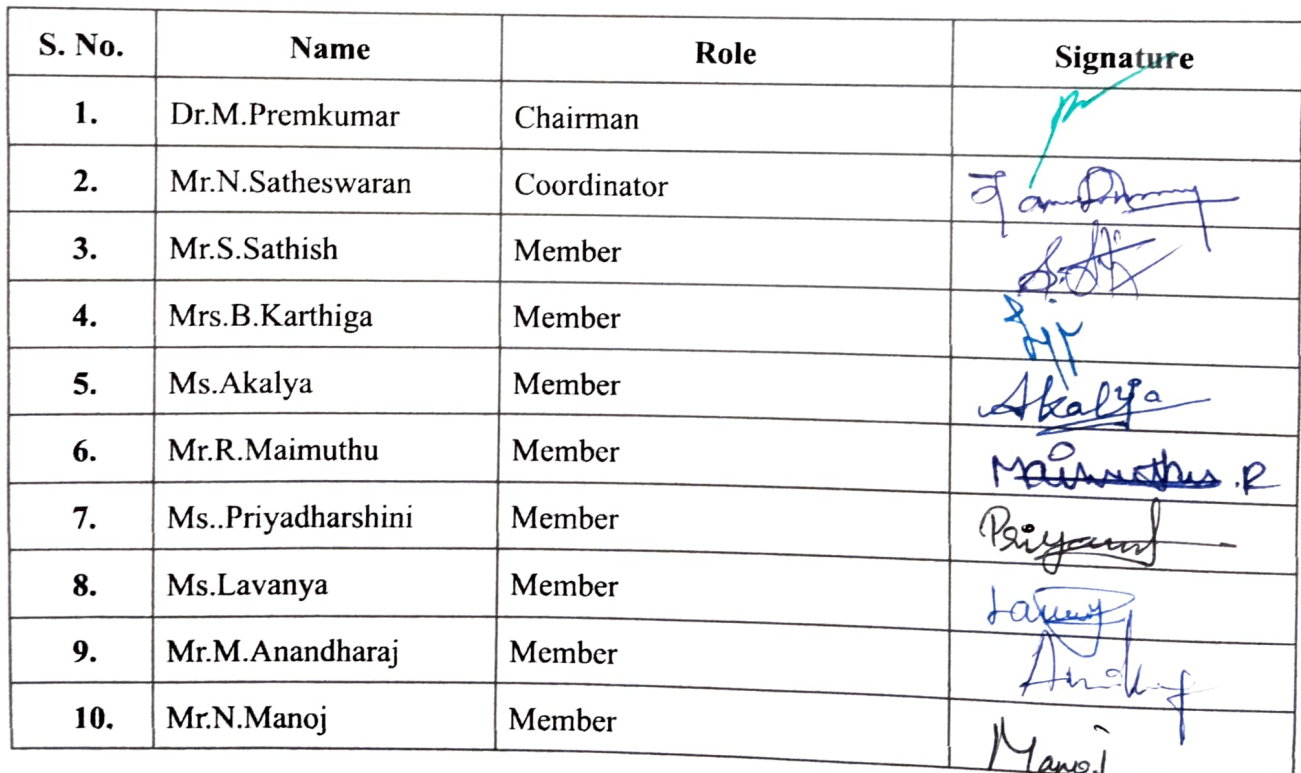 S. No. Name Role Signature
1. Dr.M.Premkumar Chairman
2. Mr.N.Satheswaran Coordinator
3. Mr.S.Sathish Member
4. Mrs.B.Karthiga Member
5. Ms.Akalya Member Akalya
6. Mr.R.Maimuthu Member Maimuthu .R
7. Ms..Priyadharshini Member
8. Ms.Lavanya Member
9. Mr.M.Anandharaj Member
10. Mr.N.Manoj Member Manoj